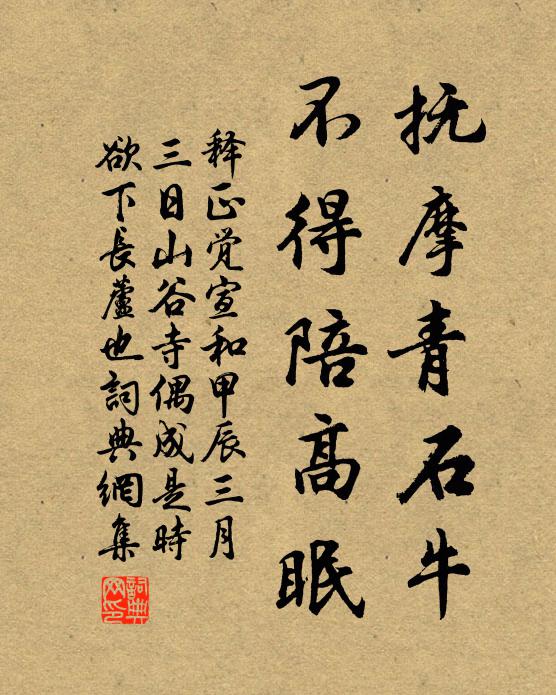 抚摩青石牛
不得陪高眠
释正觉宣和甲辰三月
三日山谷寺偶成是時
欲下長蘆也詞典網集
詞典
网印